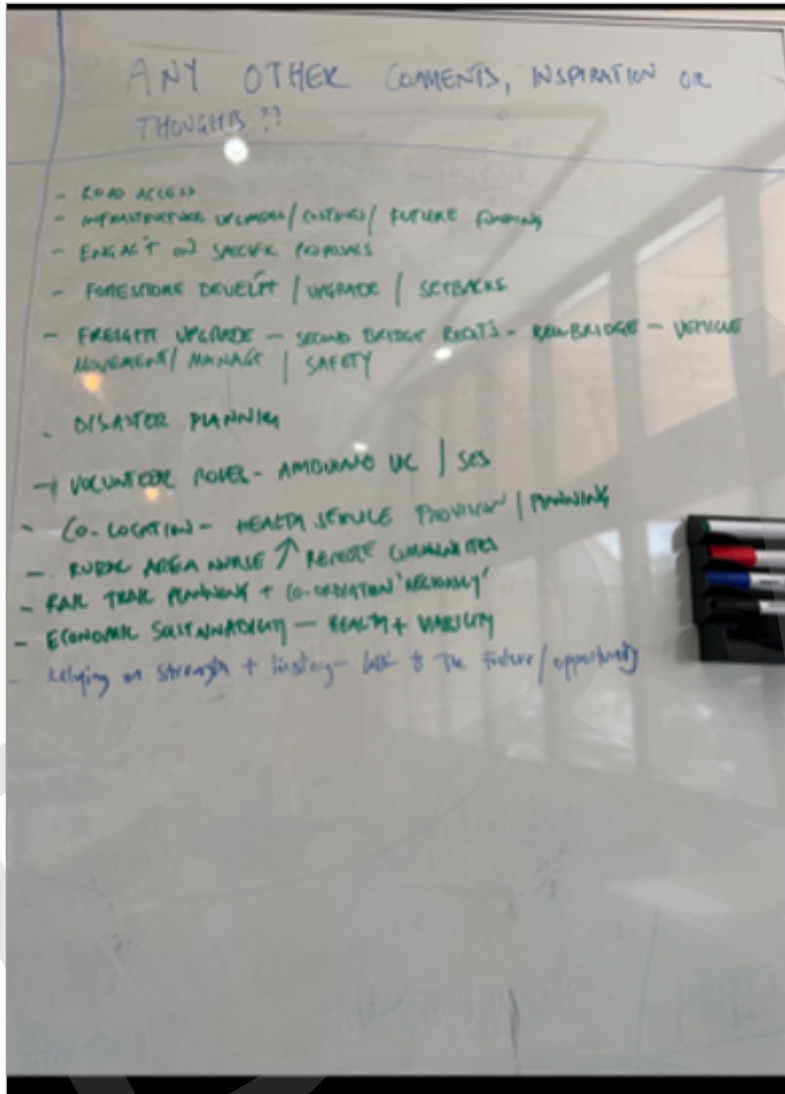 ANY OTHER COMMENTS, INSPIRATION OR
THOUGHTS ??
- ROAD ACCESS
- INFRASTRUCTURE UPGRADES / COSTINGS / FUTURE FUNDING
- ENGAG'T ON SPECIFIC PROPOSALS
- FORESHORE DEVEL'PT / UPGRADE / SETBACKS
- FREIGHT UPGRADE - SECOND BRIDGE - VEHICLE
MOVEMENT / MANAG'T / SAFETY
- DISASTER PLANNING
- VOLUNTEER ROLES - AMBULANCE VIC / SES
- CO-LOCATION - HEALTH SERVICE PROVISION / PLANNING
- RURAL AREA NURSE ↑ REMOTE COMMUNITIES
- RAIL TRAIL PLANNING + CO-ORDINATION 'REGIONALLY'
- ECONOMIC SUSTAINABILITY - HEALTH + VIABILITY
- Relying on strength + history - look to the future / opportunity